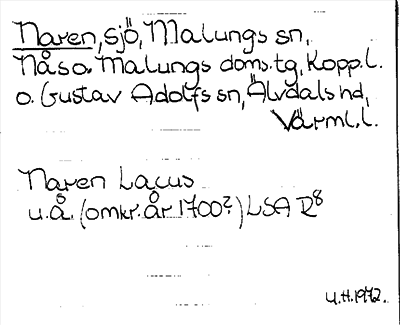 Naren, sjö, Malungs sn,
Nås o. Malungs doms.tg, Kopp.l.
o. Gustav Adolfs sn, Älvdals hd,
Värml.l.
Naren Lacus
u.å. (omkr. år 1700?) LSA R8
U.H.1972.